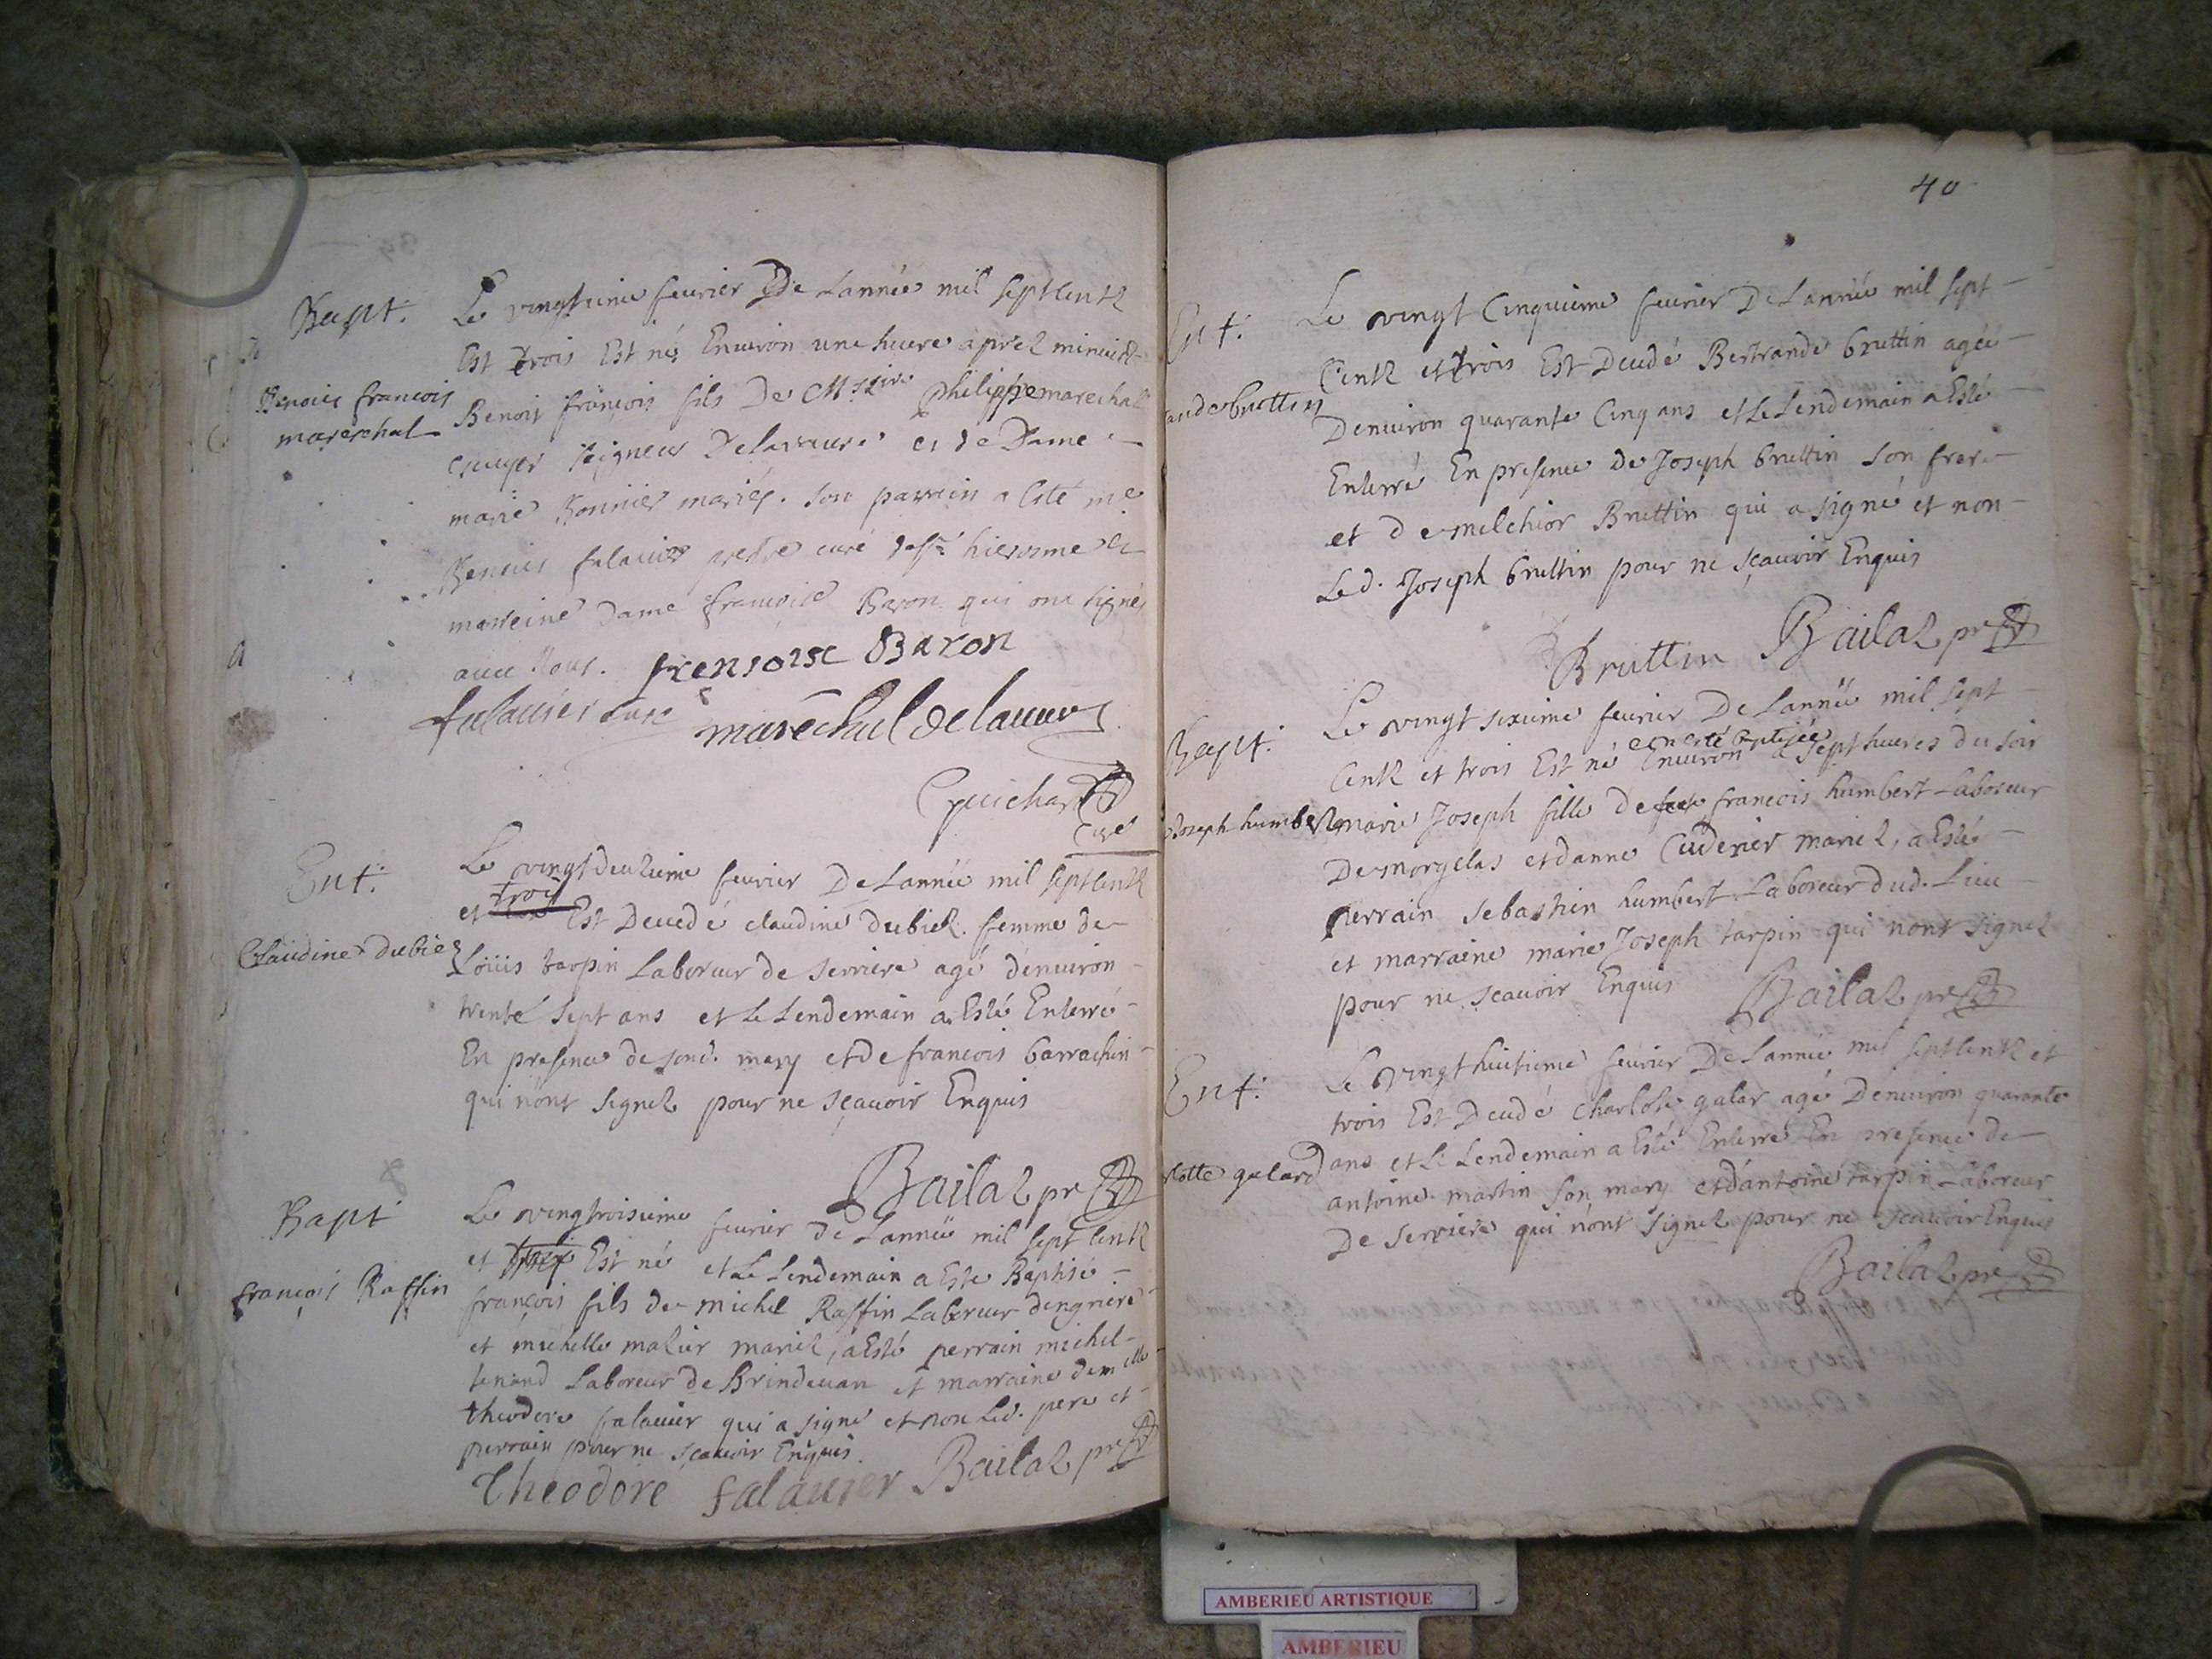 Bapt.
Benoict francois
mareschal
Le vingtunie feurier De Lannée mil septcentz
Est trois Est né Enuiron une heure aprez minuict
Benoit françois fils De Messire philippe marechal
escuyer seigneur Delavaure et de Dame
marie Bonnier mariés. son parrein a esté me
Benoict falauier prestre curé de st hierosme et
marreine Dame francoise Baron qui ont signés
auec Nous. frensoise Baron
falauier curé marêchal delauure
Guichard
Curé
Ent.
Claudine dubiez
Le vingtdeuzieme feurier De Lannée mil septcentz
et trois Est Decedé claudine dubiez femme de
Loüis tarpin Laboreur de serriere agé denuiron
trente sept ans et Le Lendemain a Esté Enterré
En presence de sond. mary et de francois barrachin
qui nont signez pour ne sçauoir Enquis
Bailaz pr
Bapt
françois Raffin
Le vingtroisieme feurier De Lannée mil sept centz
et trois Est né et Le Lendemain a Este Baptisé
françois fils de michel Raffin Laboreur dingriere
et michelle malier mariez, a Esté perrain michel
tenand Laboreur de Brindeuan et marraine demelle
theodore falauier qui a signé et non Led. pere et
perrain pour ne sçauoir Enquis.
Theodore falauier Bailaz pr
40
Ent.
ande bruttin
Le vingt Cinquieme feurier De Lannée mil sept
Centz et trois Est Decedé Bertrande bruttin agée
Denuiron quarante Cinq ans et Le Lendemain a Esté
Enterré En presence de Joseph bruttin son frere
et de melchior Bruttin qui a signé et non
Led. Joseph bruttin pour ne sçauoir Enquis
Bruttin Bailaz pr
Bapt.
Joseph humbert
Le vingt sixieme feurier De Lannée mil sept
et a esté baptisée
Centz et trois Est né Enuiron a sept heures du soir
marie Joseph fille de feu francois humbert Laboreur
De morgelas et danne Cuderier mariez, a Esté
perrain sebastien humbert Laboreur dud. Lieu
et marraine marie Joseph tarpin qui nont signez
pour ne sçauoir Enquis Bailaz pr
Ent.
lotte galard
Le vingt huitieme feurier De Lannée mil septcentz et
trois Est Decedé charlote galar agé Denuiron quarante
ans et Le Lendemain a Esté Enterré En presence de
antoine martin son mary et dantoine tarpin Laboreur
De serriere qui nont signez pour ne sçauoir Enquis
Bailaz pr
AMBERIEU ARTISTIQUE
AMBERIEU